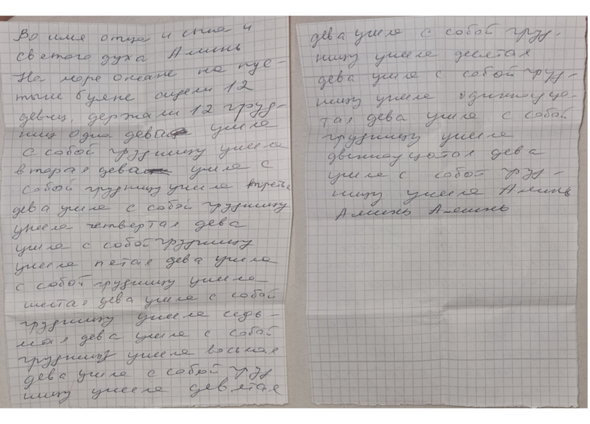 Во имя отца и сына и
святого духа Аминь
На море океане на пус-
тыне буяне сидели 12
девиц, держали 12 груд-
ниц одна дева ушла
с собой грудницу унесла
вторая дева ушла с
собой грудницу унесла третья
дева ушла с собой грудницу
унесла четвертая дева
ушла с собой грудницу
унесла пятая дева ушла
с собой грудницу унесла
шестая дева ушла с собой
грудницу унесла седь-
мая дева ушла с собой
грудницу унесла восьмая
дева ушла с собой груд
ницу унесла девятая
дева ушла с собой груд-
ницу унесла десятая
дева ушла с собой груд-
ницу унесла одиннадца-
тая дева ушла с собой
грудницу унесла
двенадцатая дева
ушла с собой груд-
ницу унесла Аминь
Аминь Аминь